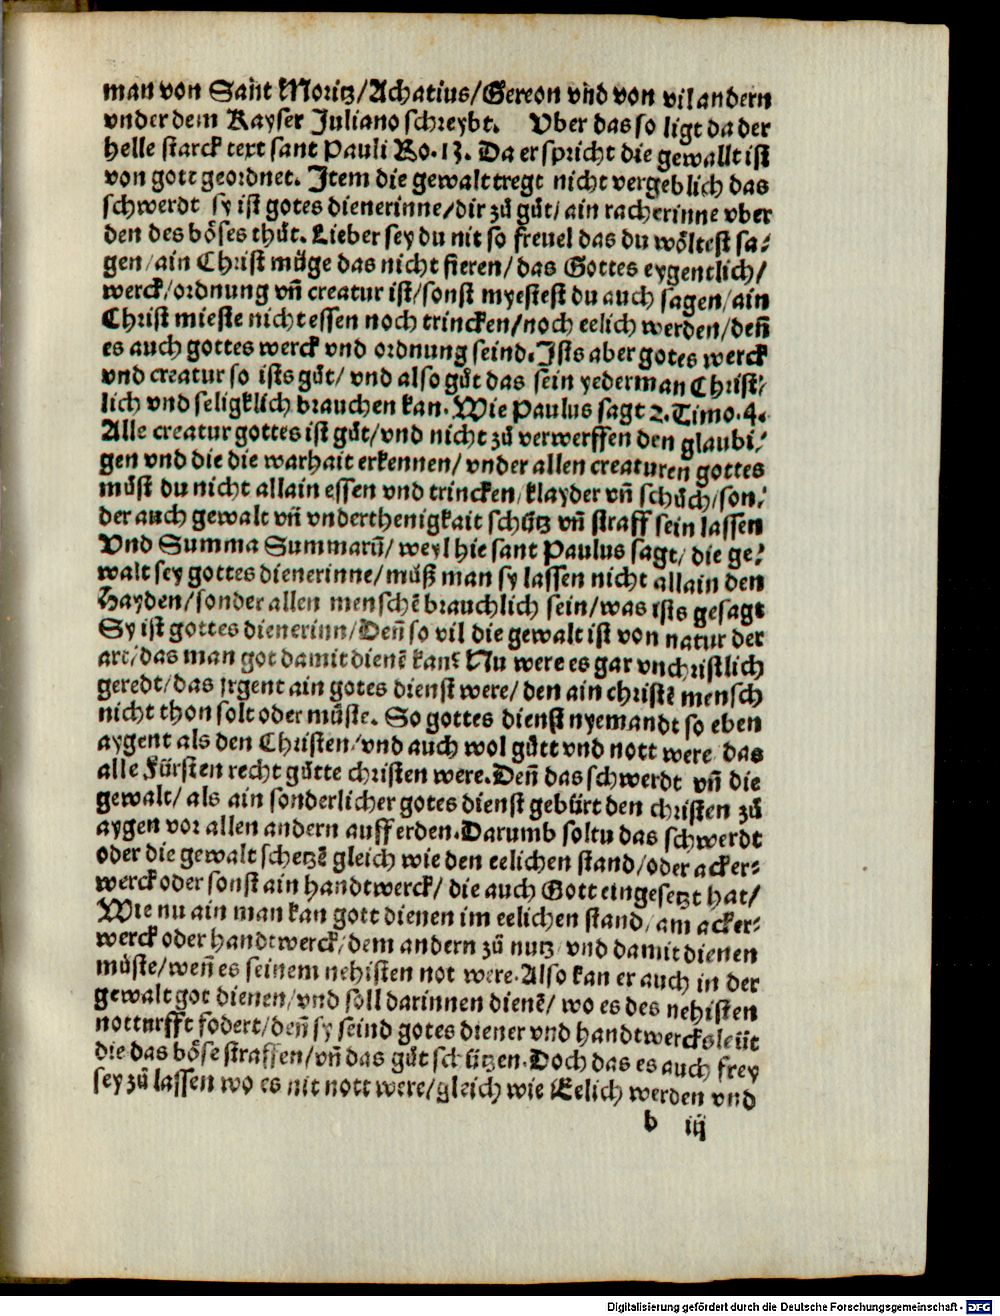 man von Sant Moritz/Achatius/Gereon vnd von vil andern
vnder dem Kayser Juliano schreybt. Vber das so ligt da der
helle starck text sant Pauli Ro.13. Da er spricht die gewallt ist
von gott geordnet. Jtem die gewalt tregt nicht vergeblich das
schwerdt sy ist gotes dienerinne/dir zů gůt/ain racherinne vber
den des böses thůt. Lieber sey du nit so freuel das du wöltest sa⸗
gen/ain Christ müge das nicht fieren/das Gottes eygentlich/
werck/ordnung vñ creatur ist/sonst myestest du auch sagen/ain
Christ mieste nicht essen noch trincken/noch eelich werden/deñ
es auch gottes werck vnd ordnung seind. Jsts aber gotes werck
vnd creatur so ists gůt/vnd also gůt das sein yederman Christ⸗
lich vnd seligklich brauchen kan. Wie Paulus sagt 2. Timo.4.
Alle creatur gottes ist gůt/vnd nicht zů verwerffen den glaubi⸗
gen vnd die die warhait erkennen/vnder allen creaturen gottes
můst du nicht allain essen vnd trincken/klayder vñ schůch/son⸗
der auch gewalt vñ vnderthenigkait schůtz vñ straff sein lassen
Vnd Summa Summarũ/weyl hie sant Paulus sagt/die ge⸗
walt sey gottes dienerinne/můß man sy lassen nicht allain den
Hayden/sonder allen menschẽ brauchlich sein/was ists gesagt
Sy ist gottes dienerinn/Deñ so vil die gewalt ist von natur der
art/das man got damit dienẽ kan? Nu were es gar vnchristlich
geredt/das jrgent ain gotes dienst were/den ain christẽ mensch
nicht thon solt oder můste. So gottes dienst nyemandt so eben
aygent als den Christen/vnd auch wol gůtt vnd nott were das
alle Fürsten recht gůtte christen were. Deñ das schwerdt vñ die
gewalt/als ain sonderlicher gotes dienst gebürt den christen zů
aygen vor allen andern auff erden. Darumb soltu das schwerdt
oder die gewalt schetzẽ gleich wie den eelichen stand/oder acker⸗
werck oder sonst ain handtwerck/die auch Gott eingesetzt hat/
Wie nu ain man kan gott dienen im eelichen stand/am acker⸗
werck oder handtwerck/dem andern zů nutz/vnd damit dienen
můste/weñ es seinem nehisten not were. Also kan er auch in der
gewalt got dienen/vnd soll darinnen dienẽ/wo es des nehisten
notturfft fodert/deñ sy seind gotes diener vnd handtwercksleüt
die das böse straffen/vñ das gůt schützen. Doch das es auch frey
sey zů lassen wo es nit nott were/gleich wie Eelich werden vnd
b iij
Digitalisierung gefördert durch die Deutsche Forschungsgemeinschaft - DFG